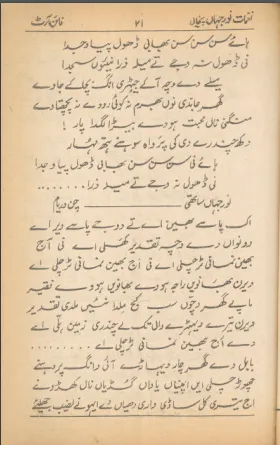 نغمات نورجہاں پنجابی ۲۱ فائن آرٹ
ہائے سن سن سن بھابی ڈھول پیا وجدا
نی ڈھول نہ وجے تے میلہ ذرا نہیں سجدا
دے وچہ آ کے جہیڑی انگ بچا کے جاوے
گھر جاندی نوں نہ کوئی روے نہ پچھتاوے
نال محبت ہووے بیڑا لگدا پار !
دکھ چندرے دی کی پرواہ سوہنے ہتھ
ہائے نی سن سن سن بھابی ڈھول پیا وجدا
نی ڈھول نہ وجے تے میلہ ذرا ........
نورجہاں ساتھی ــــــ چن وریام
اک پاسے بھین اے تے دوجے پاسے ویر اے
دوناں دے وچہ تقدیر اے نی آج
بھین نمانی ٹر چلی اے نی آج بھین نمانی ٹر چلی اے
ویرن بھانویں راجہ ہووے بھانویں ہووے فقیر
ماپے گھر وچوں سب کجھ ملدا نئیں ملدی تقدیر
ویرن تیرے ویہڑے والی تک لے چندری زمین اے
دے آج بھین نمانی ٹر چلی اے .........
بابل دے گھر چار دیہاڑے آئی وانگ پردہنے
چھوڑ چلی ایں اپنیاں یاداں گڈیاں نال کھڈونے
اج تیری کل ساڈی واری دھیاں دے ایہو نے نصیب